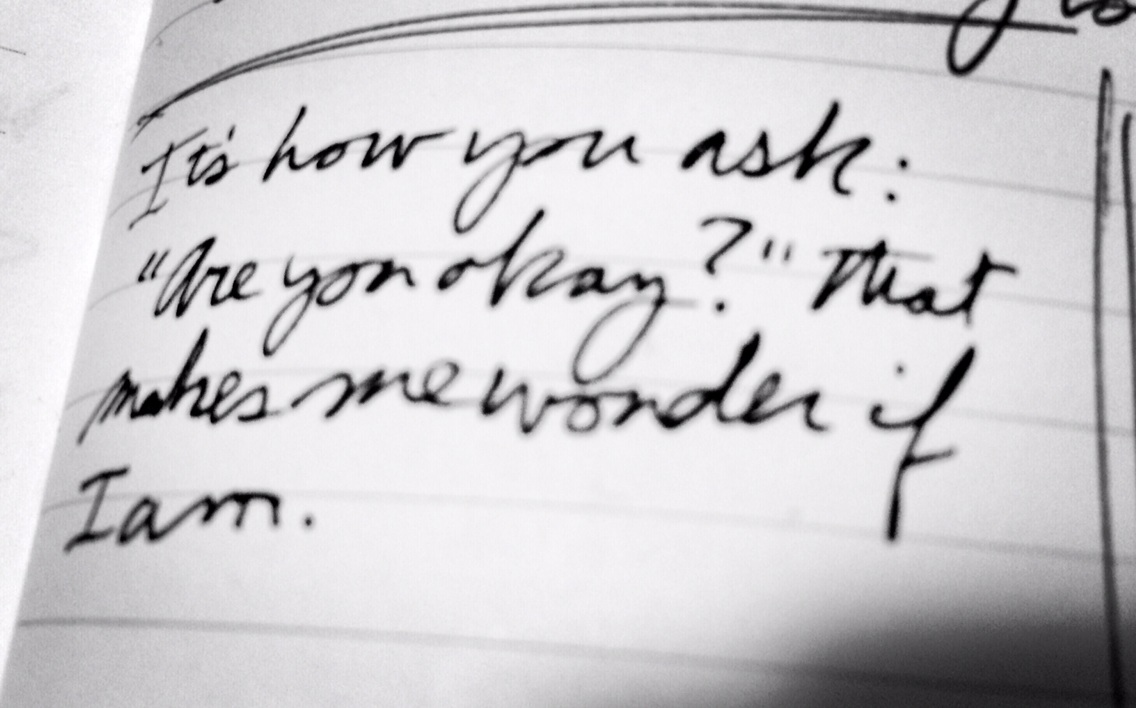 It's how you ask:
"Are you okay?" That
makes me wonder if
I am.